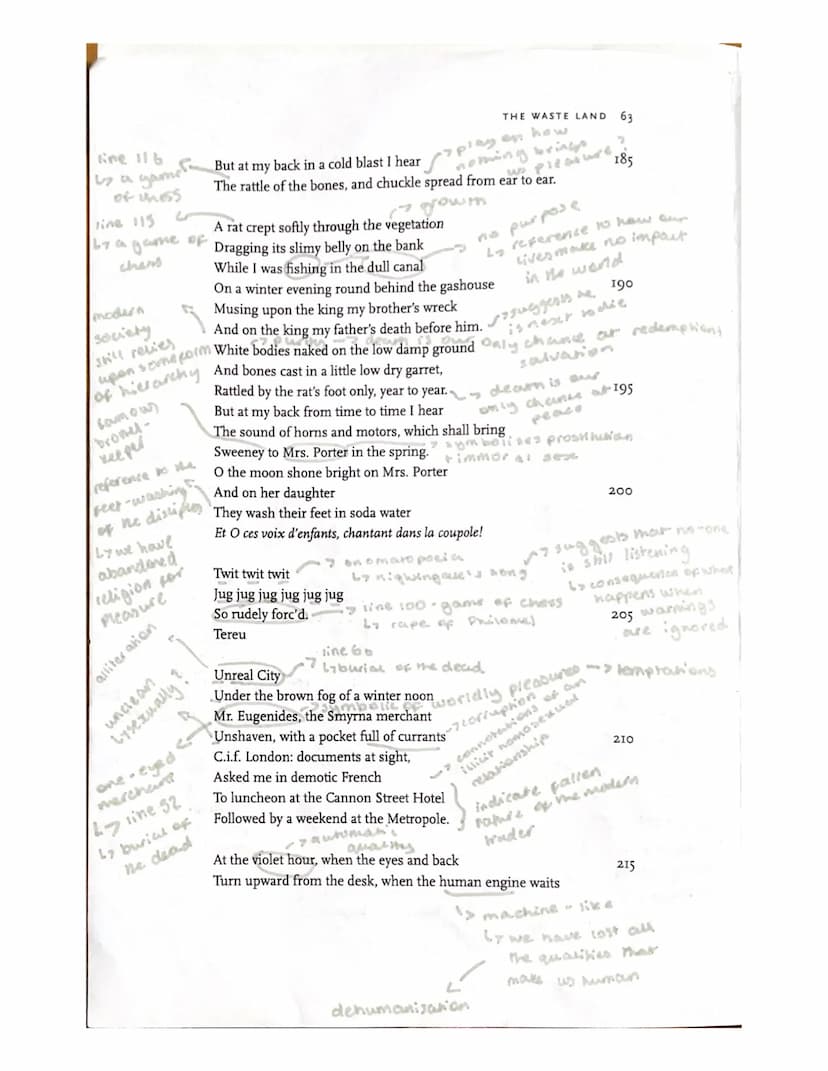 THE WASTE LAND 63
line 116
↳ a game
of chess
→ play on how
nothing brings
us pleasure?
But at my back in a cold blast I hear
185
The rattle of the bones, and chuckle spread from ear to ear.
line 115
↳ a game of
chess
→ growth
A rat crept softly through the vegetation
Dragging its slimy belly on the bank
→ no purpose
↳ reference to how our
lives make no impact
in the world
While I was fishing in the dull canal
On a winter evening round behind the gashouse
190
Musing upon the king my brother's wreck
And on the king my father's death before him.
→ suggests he
is next to die
modern
society
still relies
upon some form
of hierarchy
→ purity → death is our only chance at redemption/
salvation
White bodies naked on the low damp ground
And bones cast in a little low dry garret,
Rattled by the rat's foot only, year to year.
195
→ death is our
only chance at
peace
But at my back from time to time I hear
The sound of horns and motors, which shall bring
Sweeney to Mrs. Porter in the spring.
→ symbolises prostitution
+ immoral sex
famous
brothel-
keeper
O the moon shone bright on Mrs. Porter
And on her daughter
200
They wash their feet in soda water
Et O ces voix d'enfants, chantant dans la coupole!
reference to the
feet-washing
of the disciples
↳ we have
abandoned
religion for
pleasure
→ onomatopoeia
↳ nightingale's song
→ suggests that no-one
is still listening
↳ consequence of what
happens when
warnings
are ignored
Twit twit twit
Jug jug jug jug jug jug
So rudely forc'd.
205
→ line 100 - game of chess
↳ rape of Philomel
Tereu
line 60
↳ burial of the dead
alliteration
Unreal City
Under the brown fog of a winter noon
→ symbolic of worldly pleasures → temptations
Mr. Eugenides, the Smyrna merchant
Unshaven, with a pocket full of currants
210
unclean
↳ sexually?
→ corruption of an
→ connotations
illicit homosexual
relationship
C.i.f. London: documents at sight,
Asked me in demotic French
To luncheon at the Cannon Street Hotel
Followed by a weekend at the Metropole.
indicate fallen
nature of the modern
trader
one-eyed
merchant
↳ line 52
↳ burial of
the dead
→ automatic
quality
At the violet hour, when the eyes and back
215
Turn upward from the desk, when the human engine waits
↳ machine-like
↳ we have lost all
the qualities that
make us human
dehumanisation